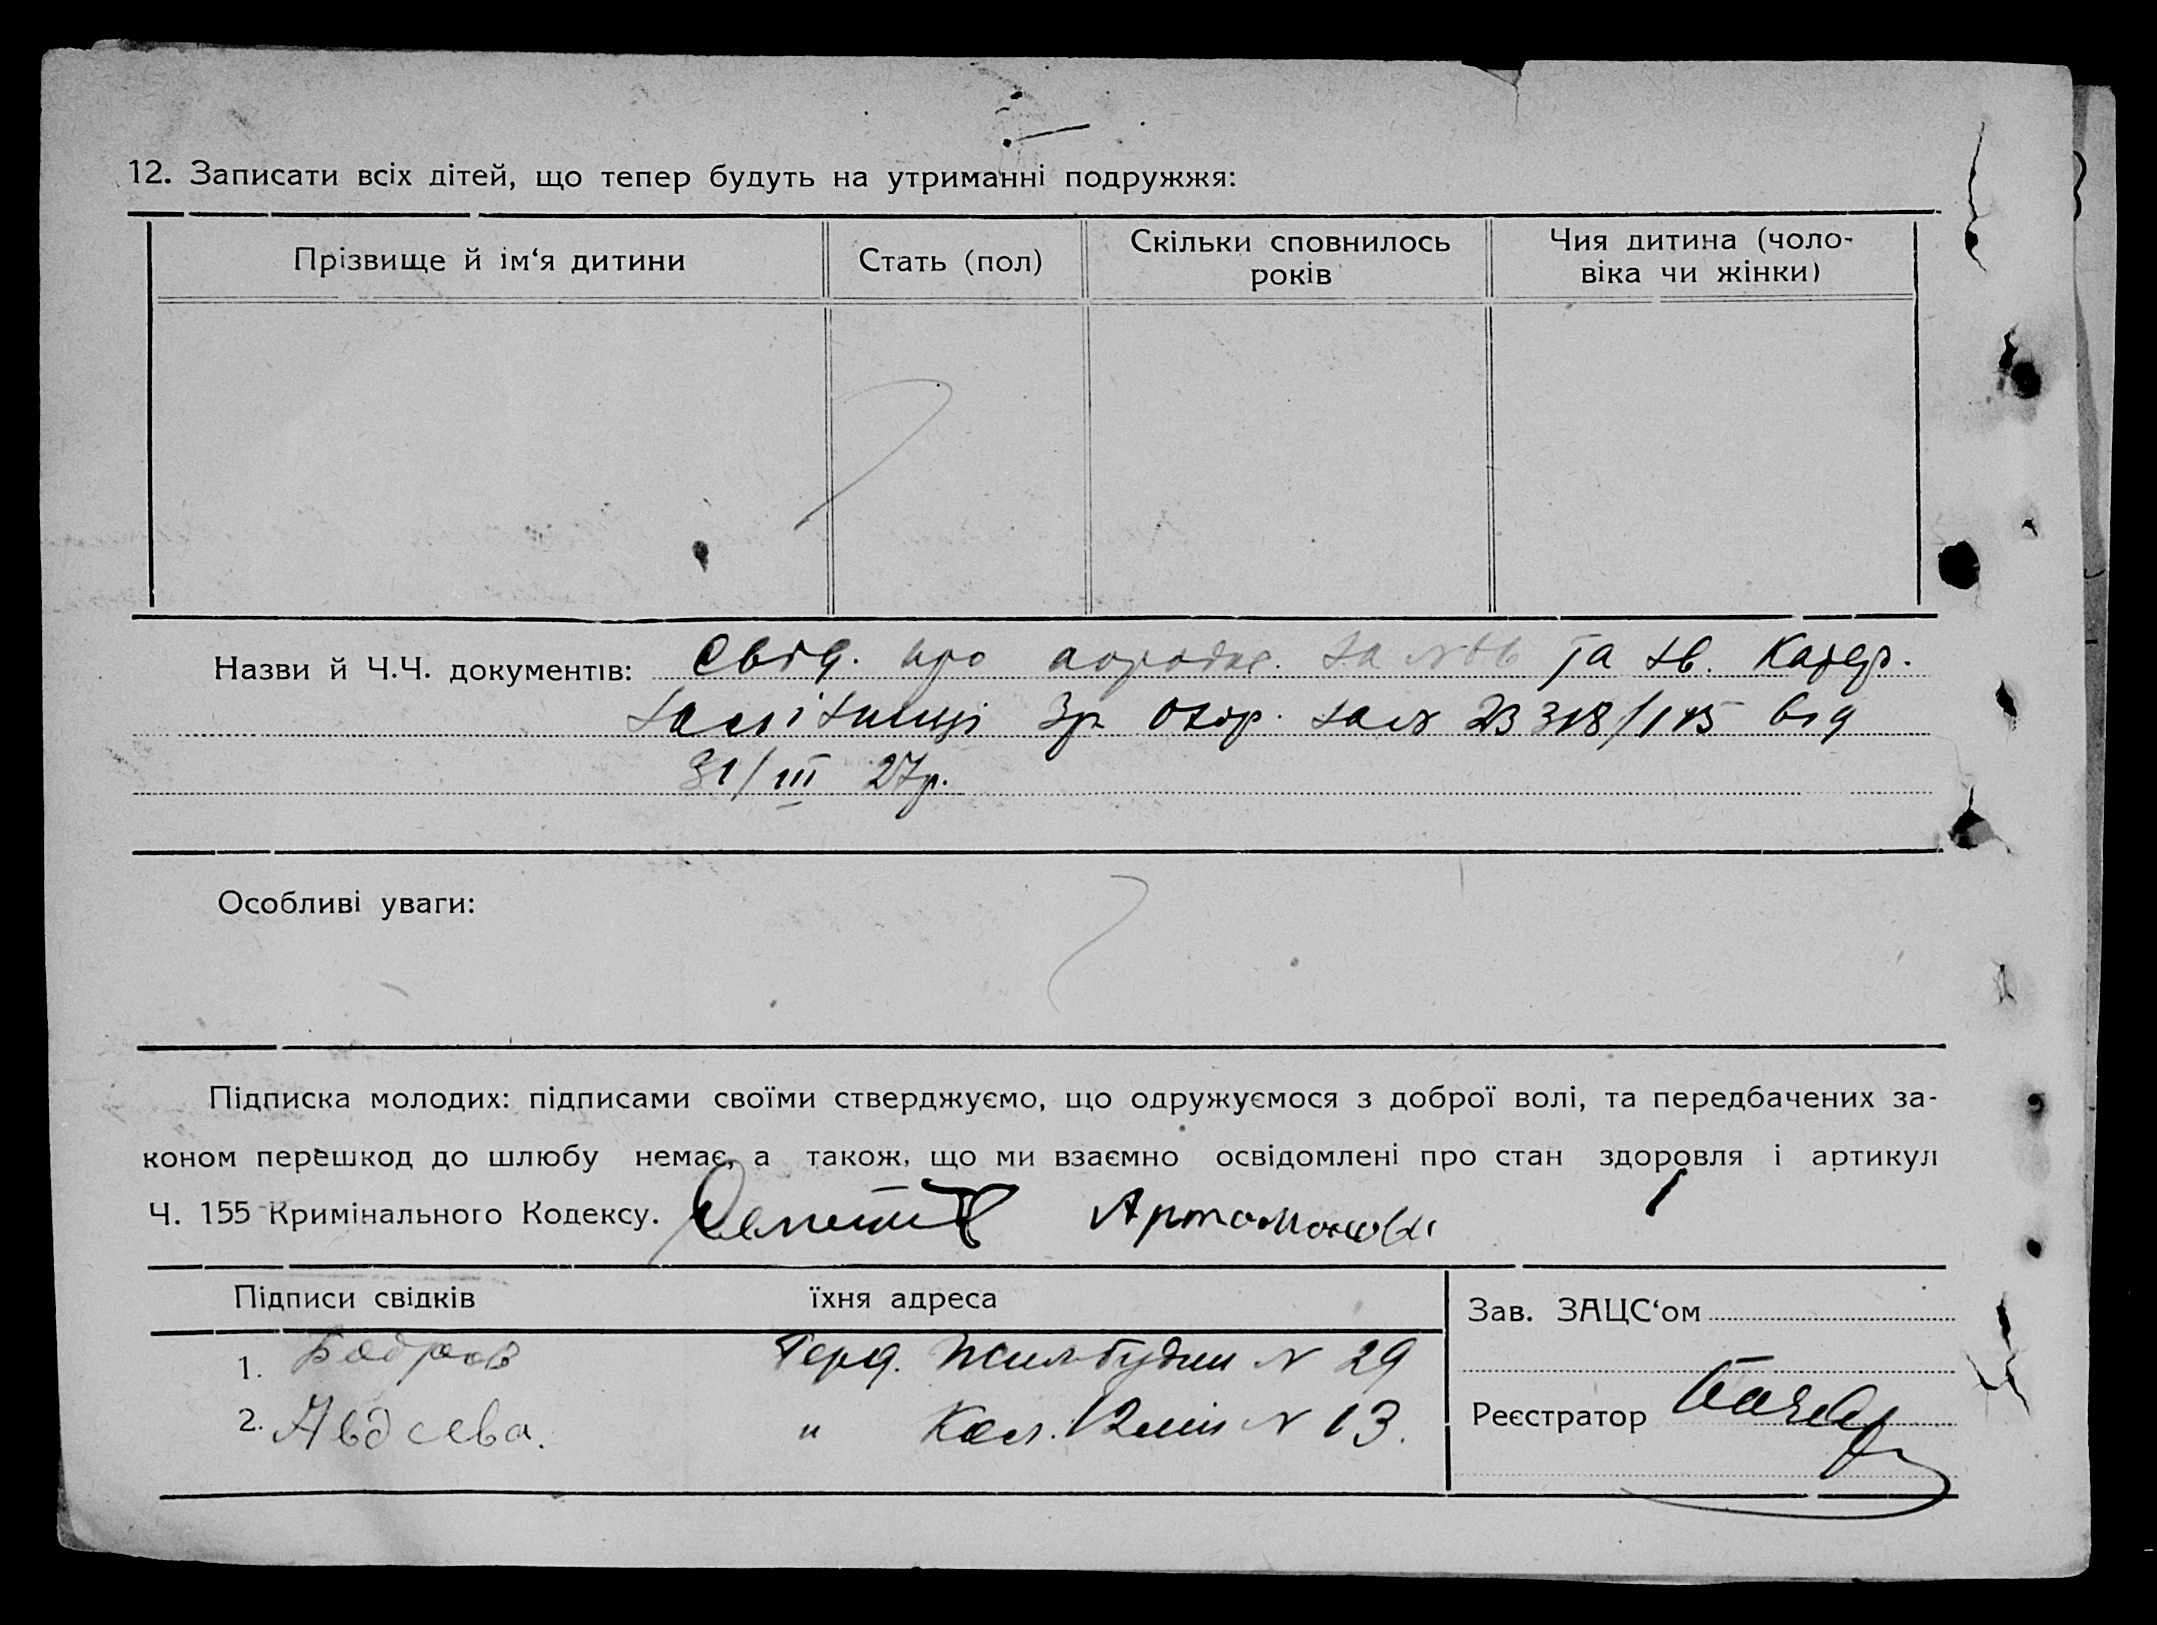 12. Записати всіх дітей, що тепер будуть на утриманні подружжя:
Прізвище й ім‘я дитини
Стать (пол)
Скільки сповнилось
років
Чия дитина (чоло-
віка чи жінки)
Назви й Ч.Ч. документів: Свід. про та Катер.
від
31/III 27р.
Особливі уваги:
Підписка молодих: підписами своїми стверджуємо, що одружуємося з доброї волі, та передбачених за-
коном перешкод до шлюбу немає, а також, що ми взаємно освідомлені про стан здоровля і артикул
Ч. 155 Кримінального Кодексу. Артамонова
Підписи свідків
їхня адреса
1. Бобров N 29
2. Авдеева. " N 13.
Зав. ЗАЦС‘ом
Реєстратор